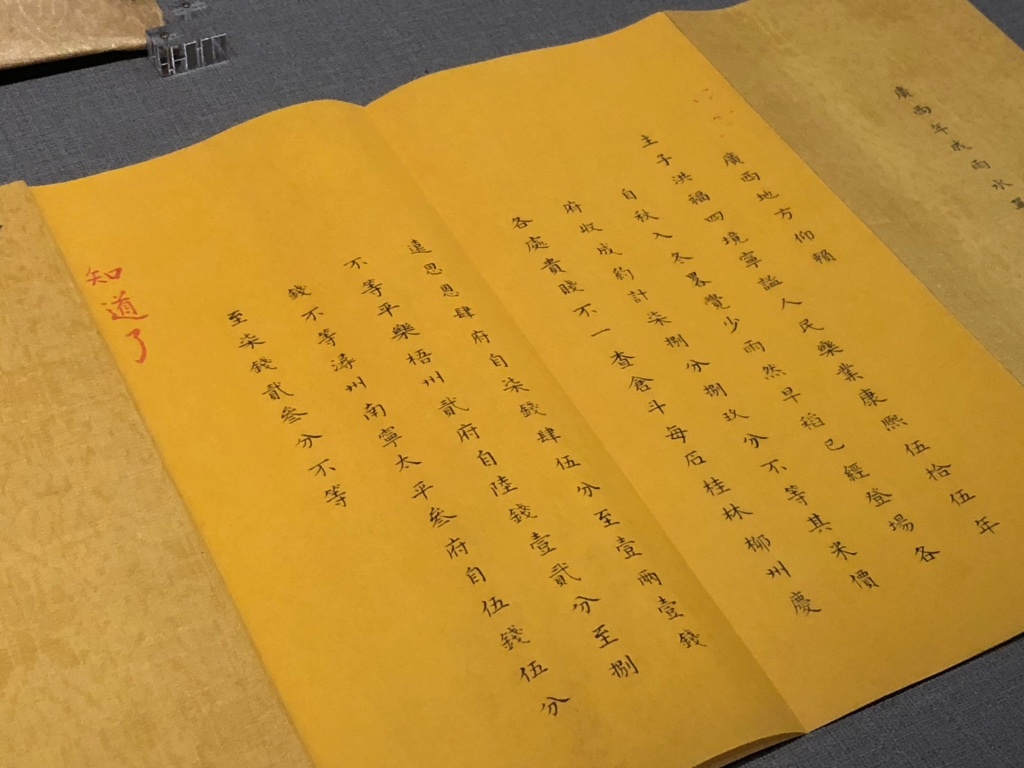 廣西年成雨水
廣西地方仰賴
主子洪福四境寧謐人民樂業康熙伍拾伍年
自秋入冬畧覺少雨然早稻已經登場各
府收成約計柒捌分捌玖分不等其米價
各處貴賤不一查倉斗每石桂林柳州慶
遠思恩肆府自柒錢肆伍分至壹兩壹錢
不等平樂梧州貳府自陸錢壹貳分至捌
錢不等潯州南寧太平參府自伍錢伍分
至柒錢貳參分不等
知道了